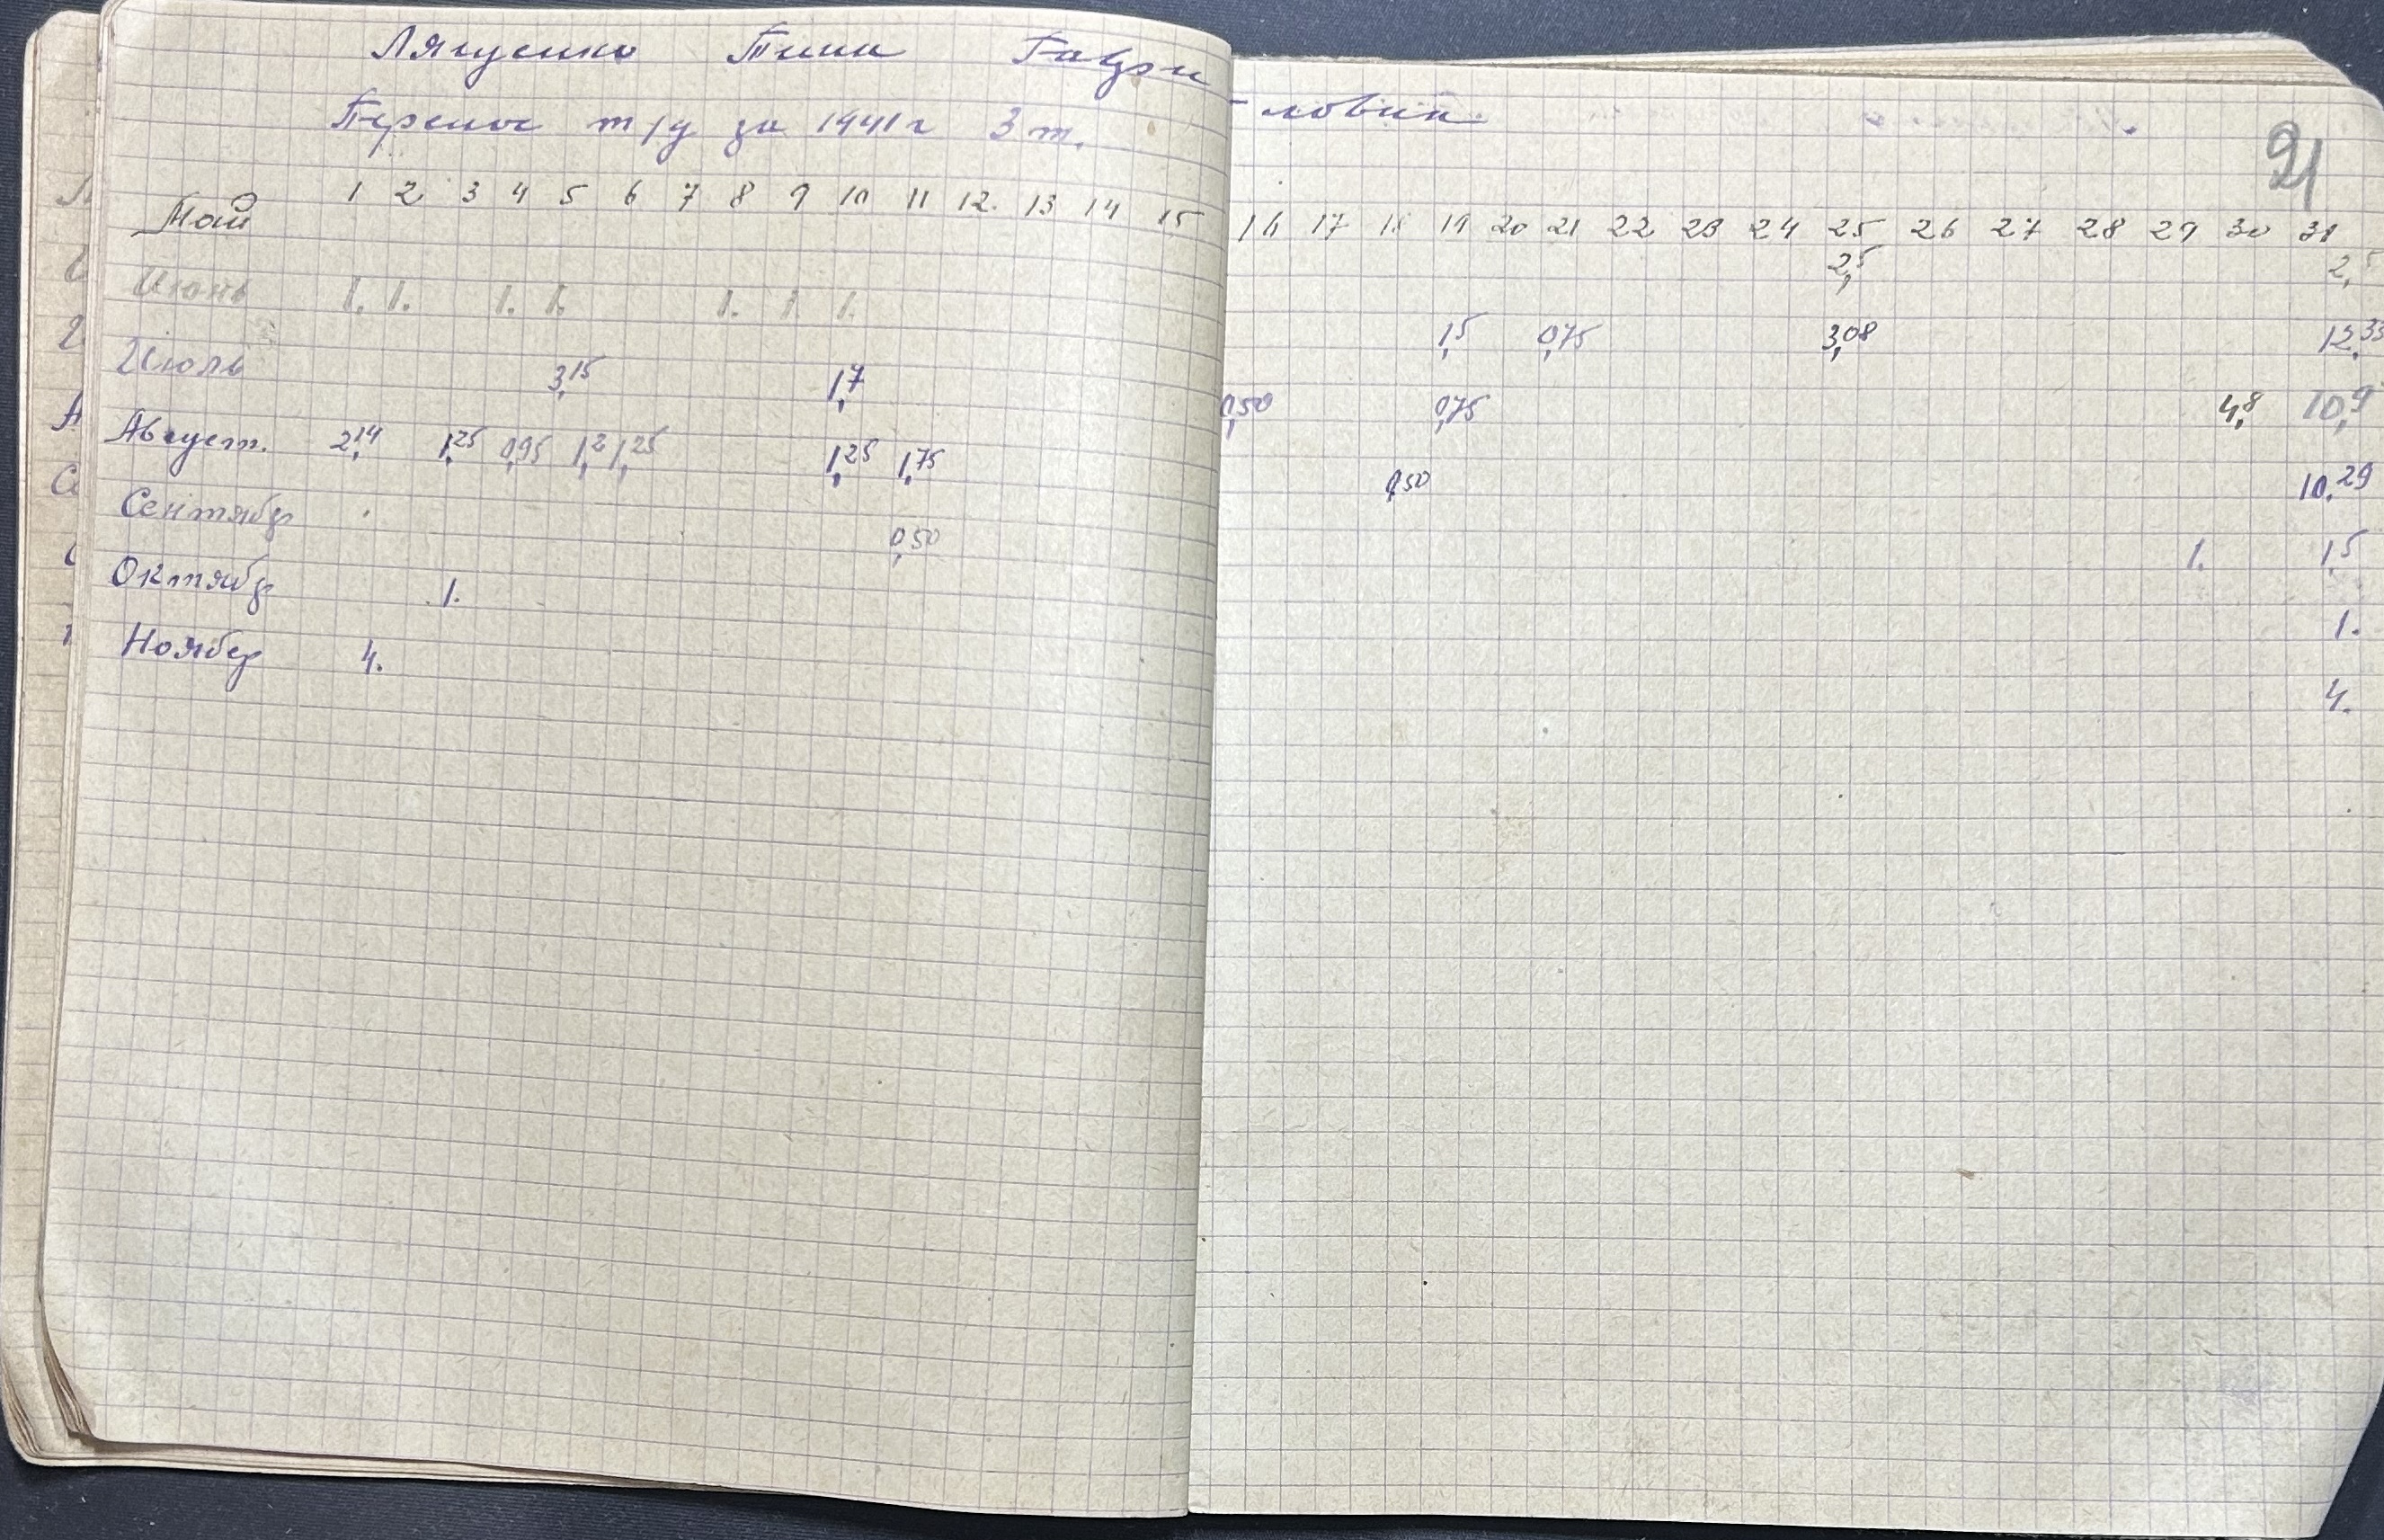 Лягуенко Тина Гаври-ловна
Перенос т/д за 1941 г 3 т.
21
Май 1 2 3 4 5 6 7 8 9 10 11 12. 13 14 15 16 17 18 19 20 21 22 23 24 25 26 27 28 29 30 31
2,5 2,5
Июнь 1. 1. 1. 1. 1. 1. 1. 1,5 0,75 3,08 12,33
Июль 3,15 1,7 0,50 0,75 4,8 10,9
Август. 2,14 1,25 0,95 1,2 1,25 1,25 1,75 0,50 10,29
Сентябр 0,50 1. 1,5
Октябр 1. 1.
Ноябер 4. 4.